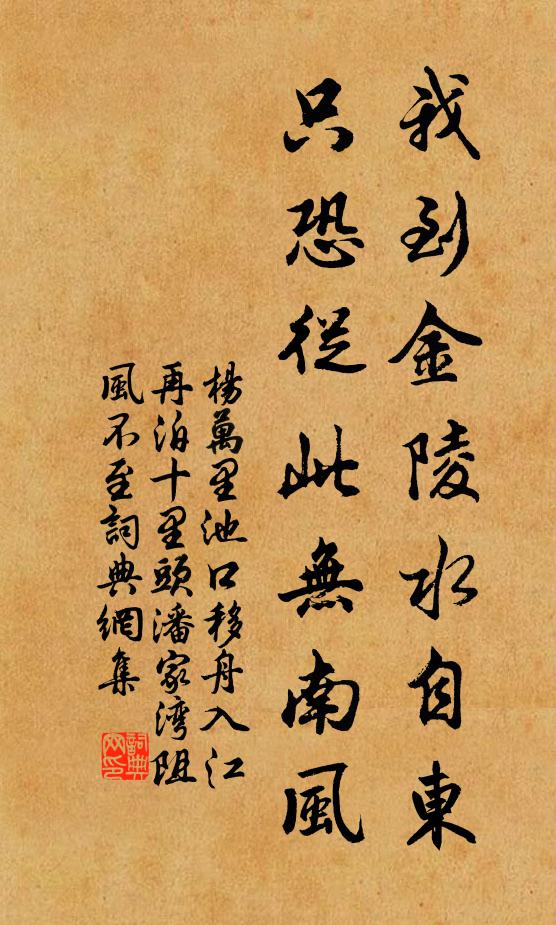 我到金陵水自東
只恐從此無南風
楊萬里池口移舟入江
再泊十里頭潘家灣阻
風不至詞典網集
詞典網印